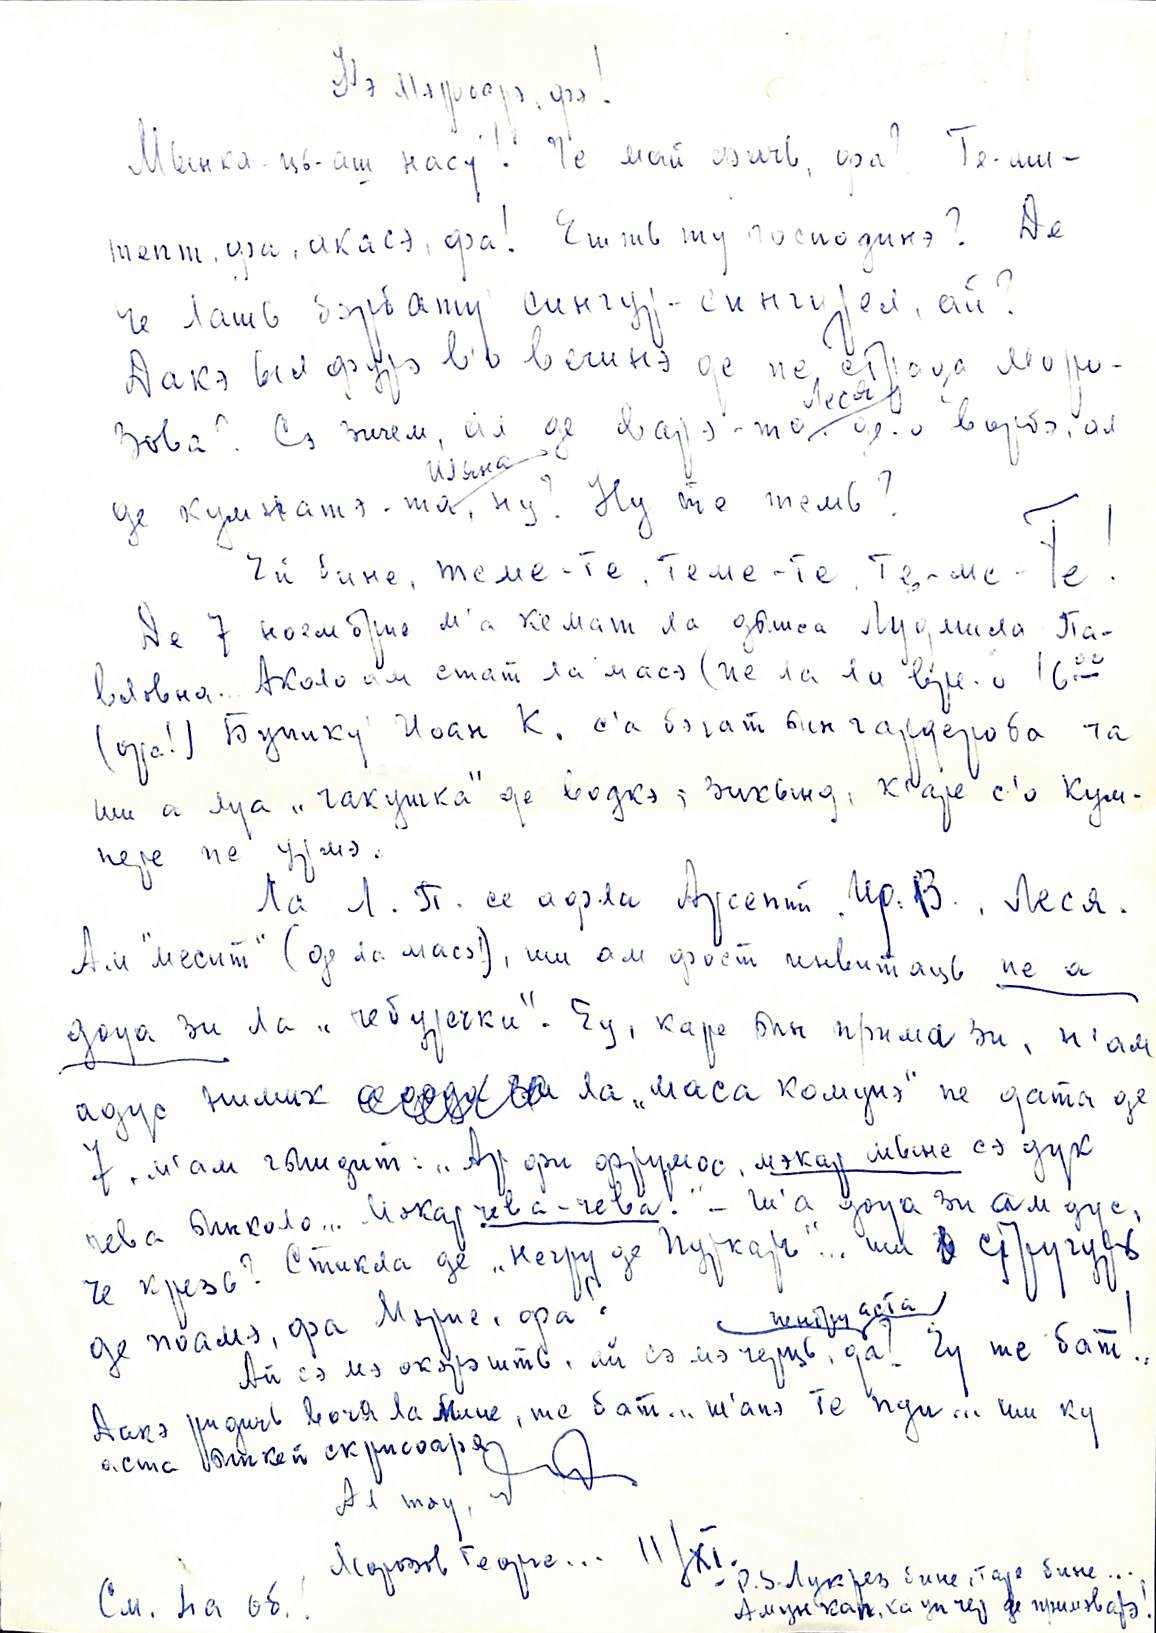 Мэ Мэриоарэ, фэ!
Мынка-ць-аш насу! Че май фачь, фа? Те-аш-
тепт, фа, акасэ, фа! Ешть ту господинэ? Де
че лашь бэрбату сингур-сингурел, ай?
Дакэ ыл фурэ в'о вечинэ де пе страда Моро-
зова? Сэ зичем, ал де Варэ-та де-о ворбэ, ал
Леся
де кумнатэ-та, ну? Ну те темь?
Иляна
Ей бине, теме-те, теме-те, те-ме-Те!
Де 7 ноембрие м'а кемат ла дынса Людмила Па-
вловна... Аколо ам стат ла масэ (пе ла ли вре-о 16⁰⁰
(фа!) Бунику Иоан К. с'а бэгат ын гардероба та
ши а луа „чакушка" де водкэ, зикынд, к'аре с'о кум-
пере пе урмэ.
Ла Л. П. се афла Арсений, Ир. В., Леся.
Ам "месит" (де ла масэ!), ши ам фост инвитаць пе а
доуа зи ла „чебуречки". Еу, каре ын прима зи, н'ам
адус нимик ла „маса комунэ" пе дата де
7, м'ам гындит: „Ар фи фрумос, мэкар мыне сэ дук
чева ынколо... Мэкар чева-чева." – Ш'а доуа зи ам дус,
че крезь? Стикла де „Негру де Пуркарь"... ши стругурь
де поамэ, фа Мэрие, фа!
Ай сэ мэ окэрэшть, ай сэ мэ черць, да? Еу те бат!..
пентру аста
Дакэ ридичь вочя ла мине, те бат... ш'апэ те пун... ши ку
аста ынкей скрисоаря
Ал тэу,
Морозов Георге... 11/XI.
P.S. Лукрез бине, таре бине...
Ам ун кап, ка ун чер де примэварэ!
См. на об.!